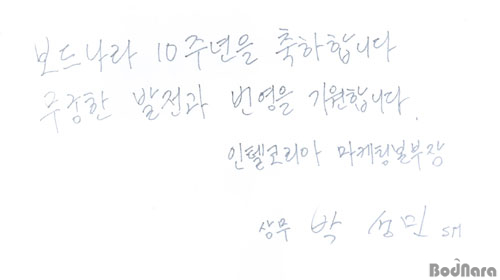 보드나라 10주년을 축하합니다
무궁한 발전과 번영을 기원합니다.
인텔코리아 마케팅본부장
상무 박 성민 SM
BodNara